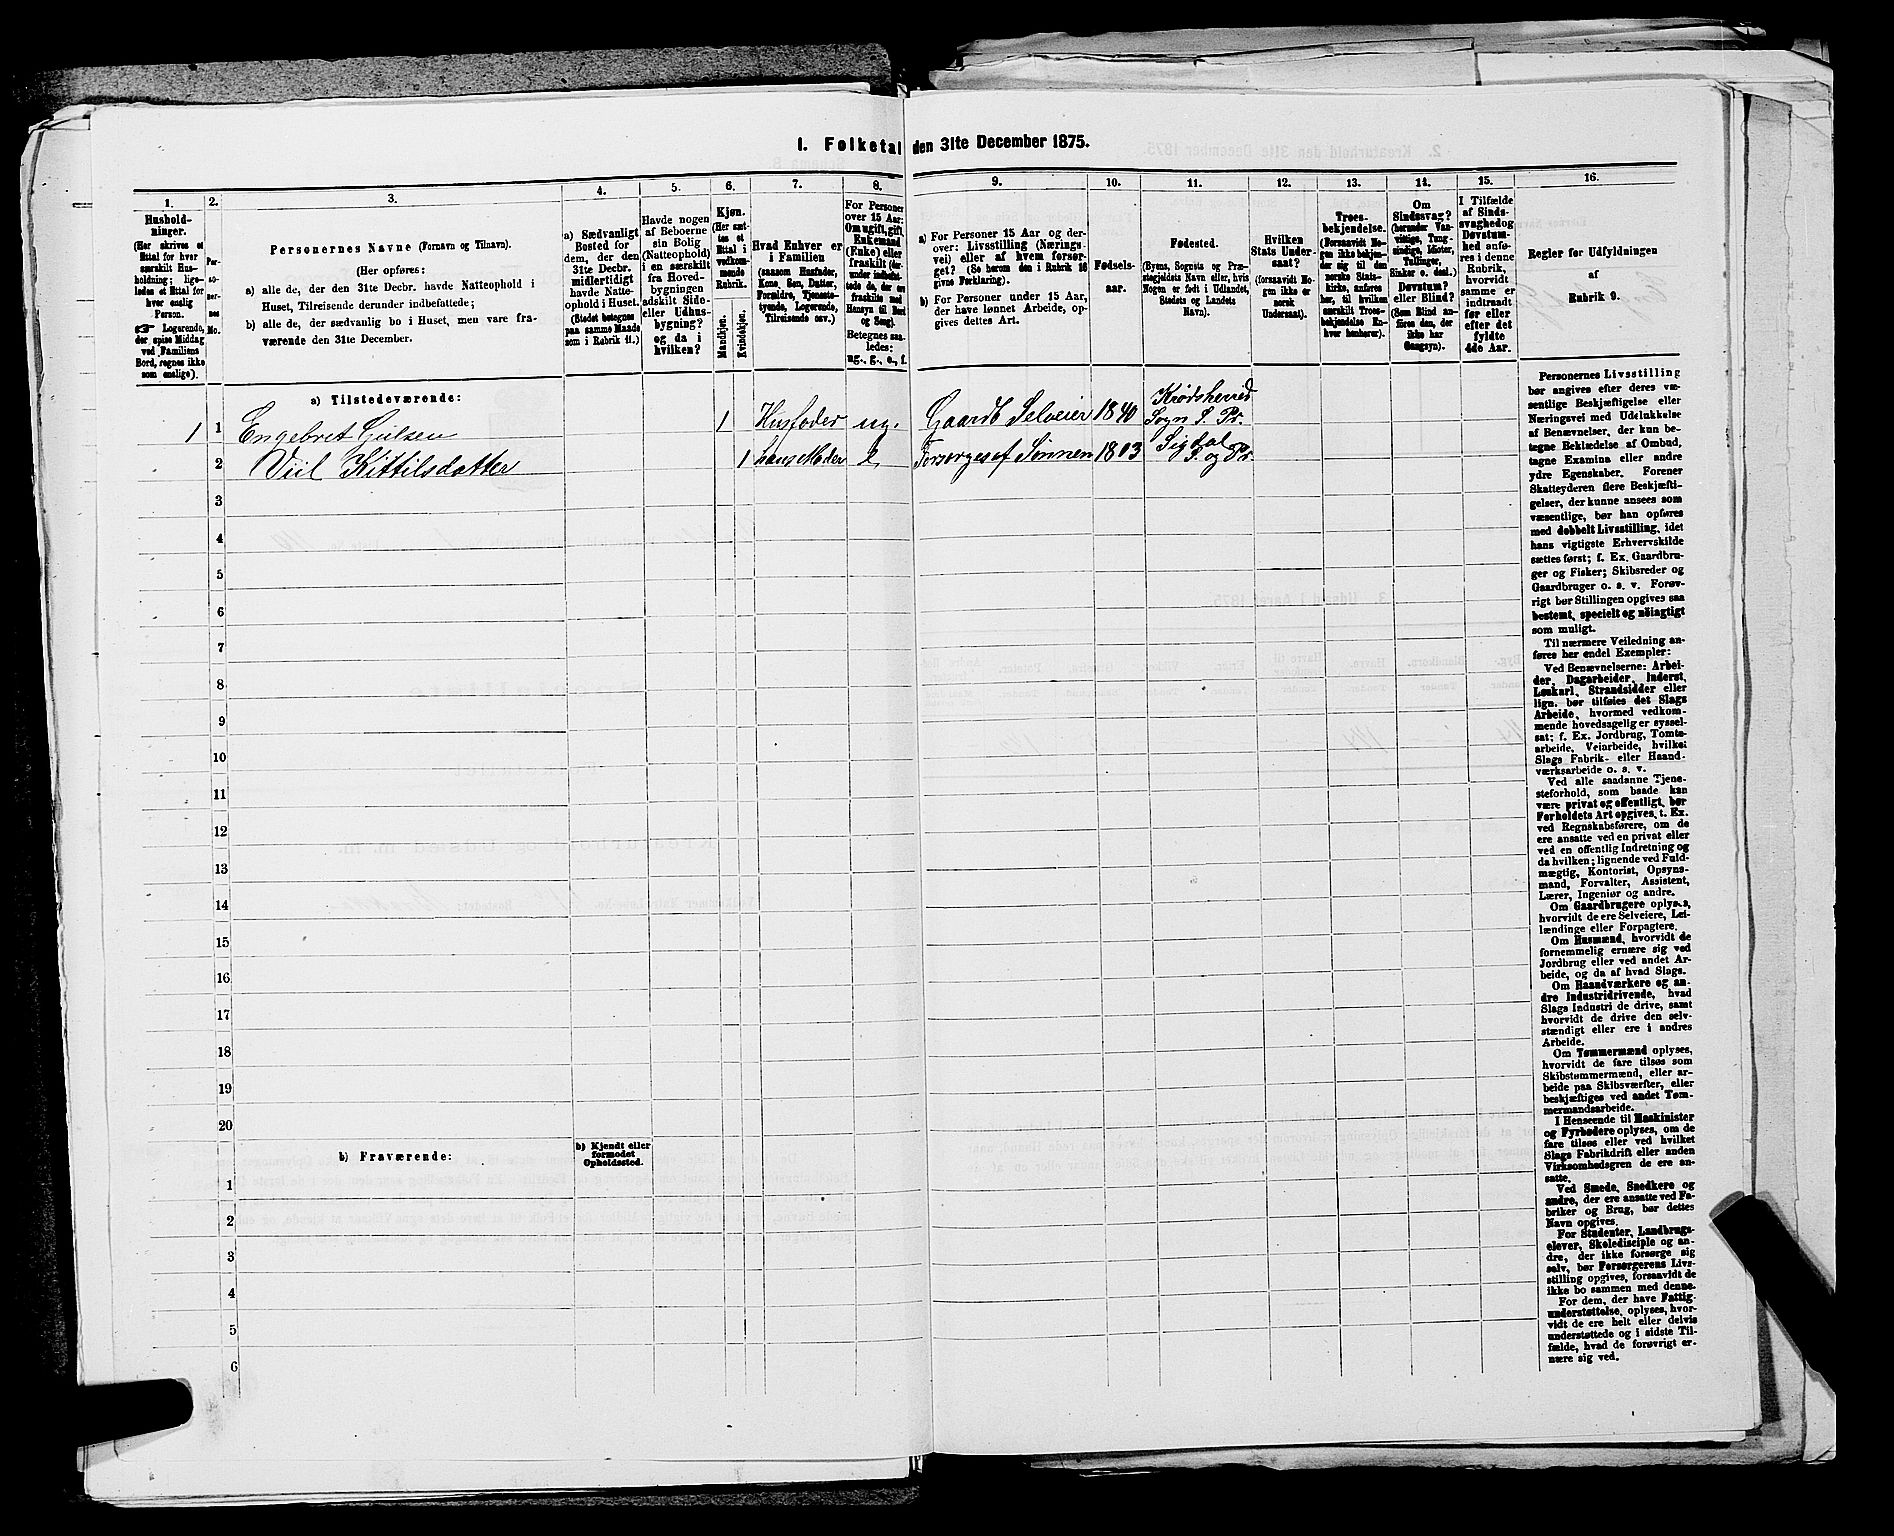 I. Folketal den 31te December 1875.
1.
Hushold-
ninger.
(Her skrives et
Ettal for hver
særskilt Hus-
holdning; lige-
ledes et Ettal for
hver enslig
Person.
☞ Logerende,
der spise Middag
ved Familiens
Bord, regnes ikke
som enslige).
2.
Per-
so-
ner-
nes
No.
3.
Personernes Navne (Fornavn og Tilnavn).
(Her opføres:
a) alle de, der den 31te Decbr. havde Natteophold i
Huset, Tilreisende derunder indbefattede;
b) alle de, der sædvanlig bo i Huset, men vare fra-
værende den 31te December.
4.
a) Sædvanligt
Bosted for
dem, der den
31te Decbr.
midlertidigt
havde Natte-
ophold i Huset.
(Stedet betegnes
paa samme Maade
som i Rubrik 11.)
5.
Havde nogen
af Beboerne
sin Bolig
(Natteophold)
i en særskilt
fra Hoved-
bygningen
adskilt Side-
eller Udhus-
bygning?
og da i
hvilken?
6.
Kjøn.
(Her sæt-
tes et
Ettal i
vedkom-
mende
Rubrik.
Mandkjøn.
Kvindekjøn.
7.
Hvad Enhver er
i Familien
(saasom Husfader,
Kone, Søn, Datter,
Forældre, Tjeneste-
tyende, Logerende,
Tilreisende osv.)
8.
For Personer
over 15 Aar:
Om ugift, gift,
Enkemand
(Enke) eller
fraskilt (der-
under indbefat-
tede de, der ere
fraskilte med
Hensyn til Bord
og Seng).
Betegnes saa-
ledes:
ug., g., e., f.
9.
a) For Personer 15 Aar og der-
over: Livsstilling (Nærings-
vei) eller af hvem forsør-
get? (Se herom den i Rubrik 16
givne Forklaring).
b) For Personer under 15 Aar,
der have lønnet Arbeide, op-
gives dettes Art.
10.
Fødsels-
aar.
11.
Fødested.
(Byens, Sognets og Præ-
stegjeldets Navn eller, hvis
Nogen er født i Udlandet,
Stedets og Landets
Navn).
12.
Hvilken
Stats Under-
saat?
(forsaavidt No-
gen ikke er
norsk
Undersaat).
13.
Troes-
bekjendelse.
(Forsaavidt No-
gen ikke bekjen-
der sig til den
norske Stats-
kirke, anføres
her, til hvilken
særskilt Troes-
bekjendelse En-
hver henhører).
14.
Om
Sindssvag?
(herunder Van-
vittige, Tung-
sindige, Idioter,
Tullinger,
Sinker o. desl.)
Døvstum?
eller Blind?
(Som Blind an-
føres den, der
ikke har
Gangsyn).
15.
I Tilfælde
af Sinds-
svaghed og
Døvstum-
hed anfø-
res i denne
Rubrik,
hvorvidt
samme er
indtraadt
før eller
efter det
fyldte
4de Aar.
16.
Regler for Udfyldningen
af
Rubrik 9.
a) Tilstedeværende:
1 1 Engebret Gulsen 1 Husfader ug. Gaardb Selveier 1840 Krødsherred
Sogn S. Pr.
2 Viil Kittilsdatter 1 hans Moder e Forsørges af Sønnen 1803 Sigdal
S. og Pr.
3
4
5
6
7
8
9
10
11
12
13
14
15
16
17
18
19
20
b) Fraværende:
b) Kjendt eller
formodet
Opholdssted.
1
2
3
4
5
6
Personernes Livsstilling
bør angives efter deres væ-
sentlige Beskjæftigelse eller
Næringsvei med Udelukkelse
af Benævnelser, der kun be-
tegne Beklædelse af Ombud,
tagne Examina eller andre
ydre Egenskaber. Forener
Skatteyderen flere Beskjæfti-
gelser, der kunne ansees som
væsentlige, bør han opføres
med dobbelt Livsstilling, idet
hans vigtigste Erhvervskilde
sættes først; f. Ex. Gaardbru-
ger og Fisker; Skibsreder og
Gaardbruger o. s. v. Forøv-
rigt bør Stillingen opgives saa
bestemt, specielt og nöiagtigt
som muligt.
Til nærmere Veiledning an-
føres her endel Exempler:
Ved Benævnelserne: Arbei-
der, Dagarbeider, Inderst,
Løskarl, Strandsidder eller
lign. bør tilføies det Slags
Arbeide, hvormed vedkom-
mende hovedsagelig er syssel-
sat; f. Ex. Jordbrug, Tomte-
arbeide, Veiarbeide, hvilket
Slags Fabrik- eller Haand-
værksarbeide o. s. v.
Ved alle saadanne Tjene-
steforhold, som baade kan
være privat og offentligt, bør
Forholdets Art opgives, t. Ex.
ved Regnskabsførere, om de
ere ansatte ved en privat eller
ved en offentlig Indretning og
da hvilken; lignende ved Fuld-
mægtig, Kontorist, Opsyns-
mand, Forvalter, Assistent,
Lærer, Ingeniør og andre.
Om Gaardbrugere oplyses,
hvorvidt de ere Selveiere, Lei-
lændinge eller Forpagtere.
Om Husmænd, hvorvidt de
fornemmelig ernære sig ved
Jordbrug eller ved andet Ar-
beide, og da af hvad Slags.
Om Haandværkere og an-
dre Industridrivende, hvad
Slags Industri de drive, samt
hvorvidt de drive den selv-
stændigt eller ere i andres
Arbeide.
Om Tømmermænd oplyses,
hvorvidt de fare tilsøs som
Skibstømmermænd, eller ar-
beide paa Skibsværfter, eller
beskjæftiges ved andet Tøm-
mermandsarbeide.
I Henseende til Maskinister
og Fyrbødere oplyses, om de
fare tilsøs eller ved hvilket
Slags Fabrikdrift eller anden
Virksomhedsgren de ere an-
satte.
Ved Smede, Snedkere og
andre, der ere ansatte ved Fa-
briker og Brug, bør dettes
Navn opgives.
For Studenter, Landbrugs-
elever, Skoledisciple og an-
dre, der ikke forsørge sig
selv, bør Forsørgerens Livs-
stilling opgives, forsaavidt de
ikke bo sammen med denne.
For dem, der have Fattig-
understøttelse, oplyses, hvor-
vidt de ere helt eller delvis
understøttede og i sidste Til-
fælde, hvad de forøvrigt er-
nære sig ved.